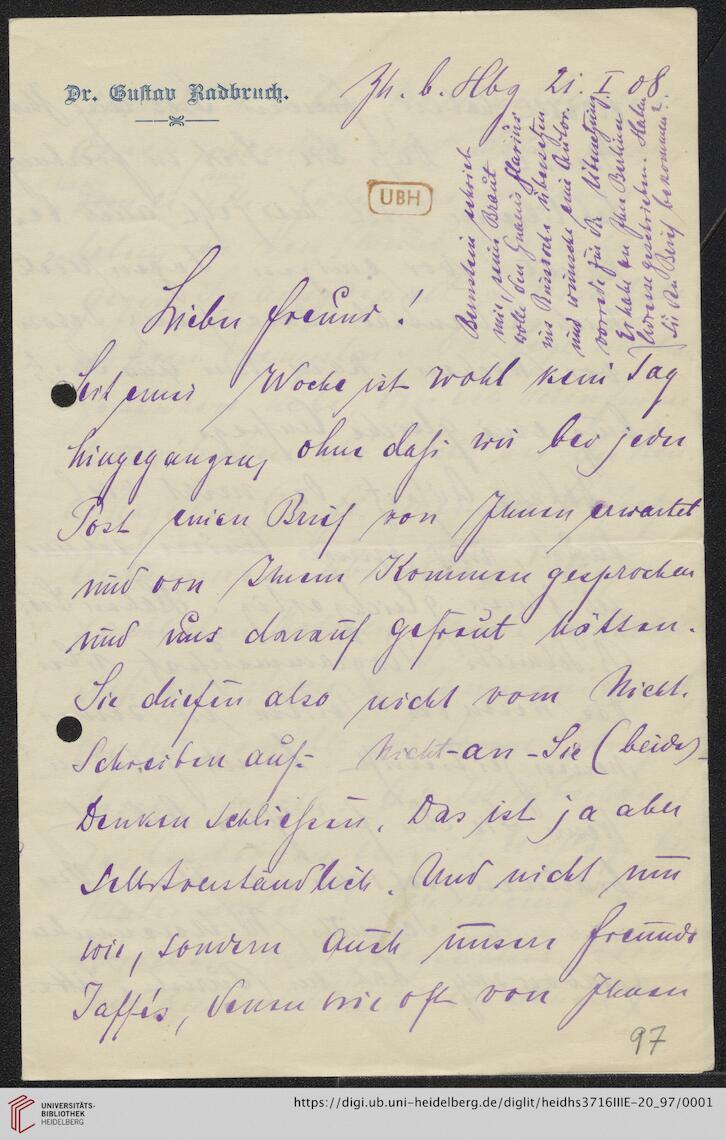 Dr. Gustav Radbruch.
Zh. b. Hbg 21. I 08.
UBH
Bernstein schrieb
mir, seine Braut
wolle den Gnaeus Flavius
ins Russische übersetzen
und wünsche eine Autor.
vorrede für die Übersetzung.
Er habe an Ihre Berliner
Adresse geschrieben. Haben
Sie den Brief bekommen?
Lieber Freund!
Seit einer Woche ist wohl kein Tag
hingegangen, ohne daß wir bei jeder
Post einen Brief von Ihnen erwartet
und von Ihrem Kommen gesprochen
und uns darauf gefreut hätten.
Sie dürfen also nicht vom Nicht-
Schreiben auf's Nicht-an-Sie (beide)-
Denken schließen. Das ist ja aber
selbstverständlich. Und nicht nur
wir, sondern auch unsere Freunde
Jaffés, denen wir oft von Ihnen
97
UNIVERSITÄTS-
BIBLIOTHEK
HEIDELBERG
https://digi.ub.uni-heidelberg.de/diglit/heidhs3716IIIE-20_97/0001